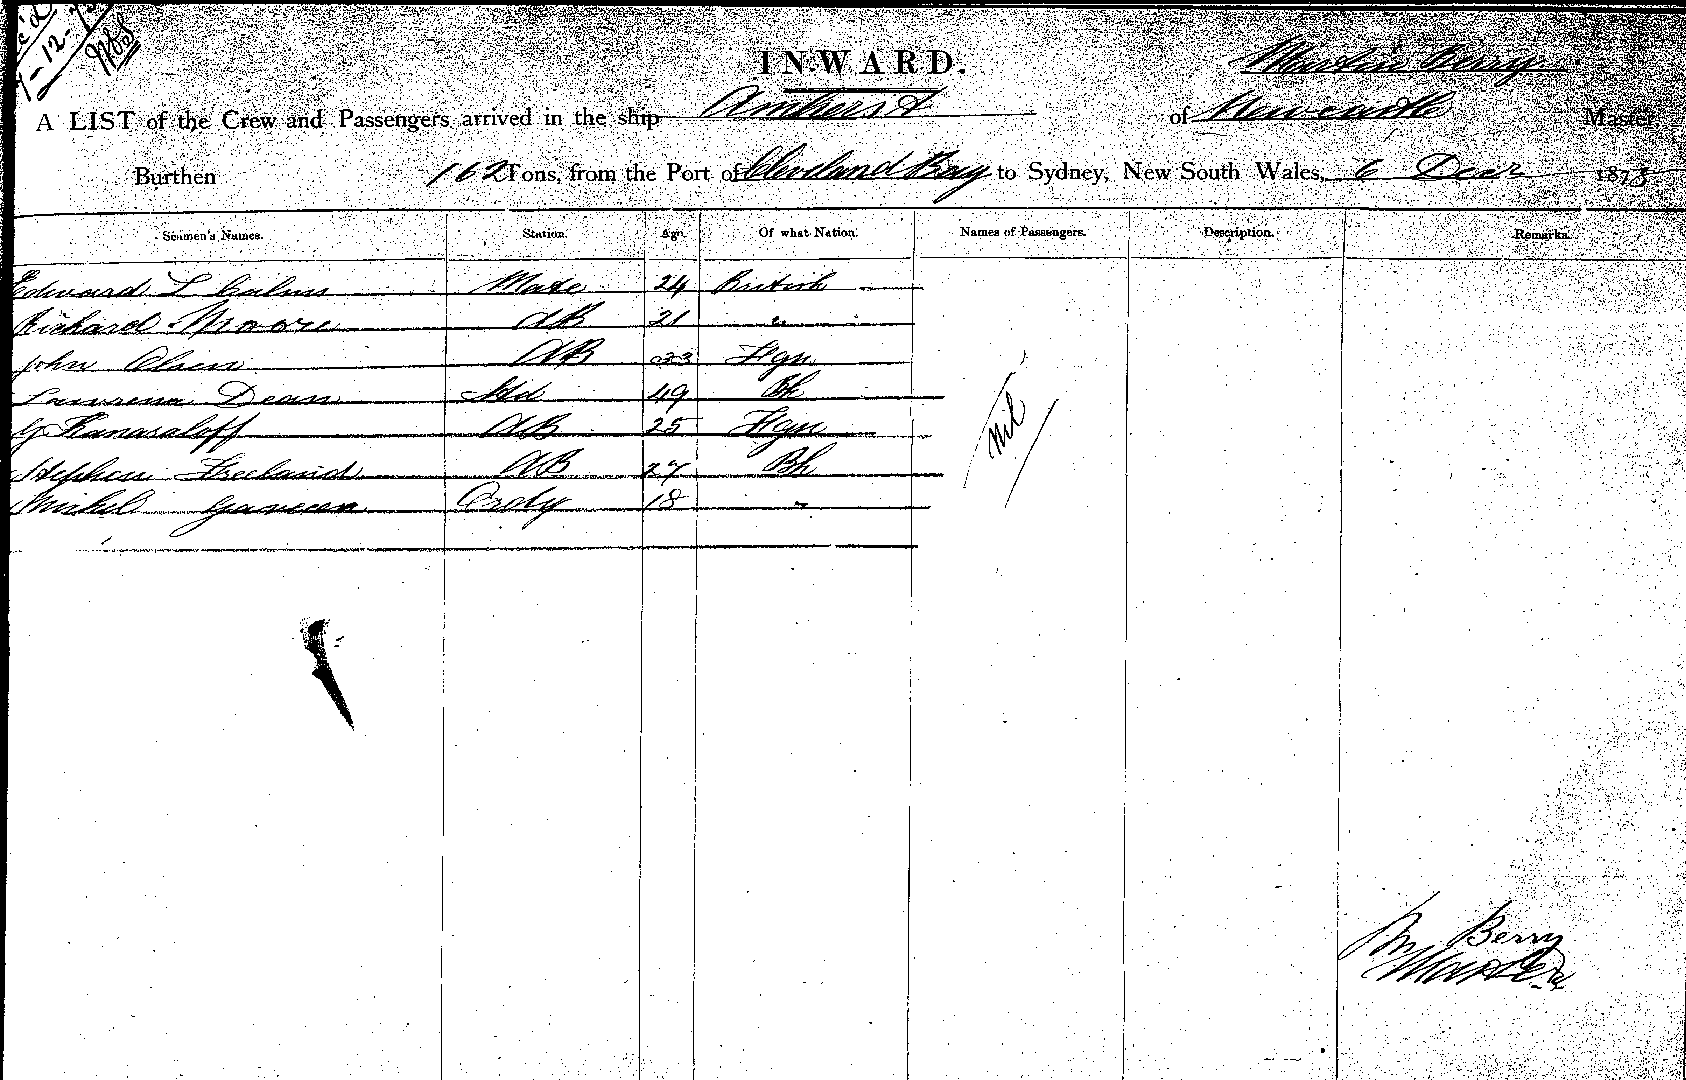 7-12-
INWARD.
Martin Berry
A LIST of the Crew and Passengers arrived in the ship Amherst of Newcastle Master
Burthen 162 Tons, from the Port of Cleveland Bay to Sydney, New South Wales, 6 Decr 1875
Seamen's Names. Station. Age. Of what Nation. Names of Passengers. Description. Remarks.
Edward L Mate 24 British
Richard Moore AB 21 "
John Olsen AB 23 Fgn
Dean Std 49 Bh
AB 25 Fgn
Stephen Freeland AB 27 Bh
18 "
nil
M Berry
Master